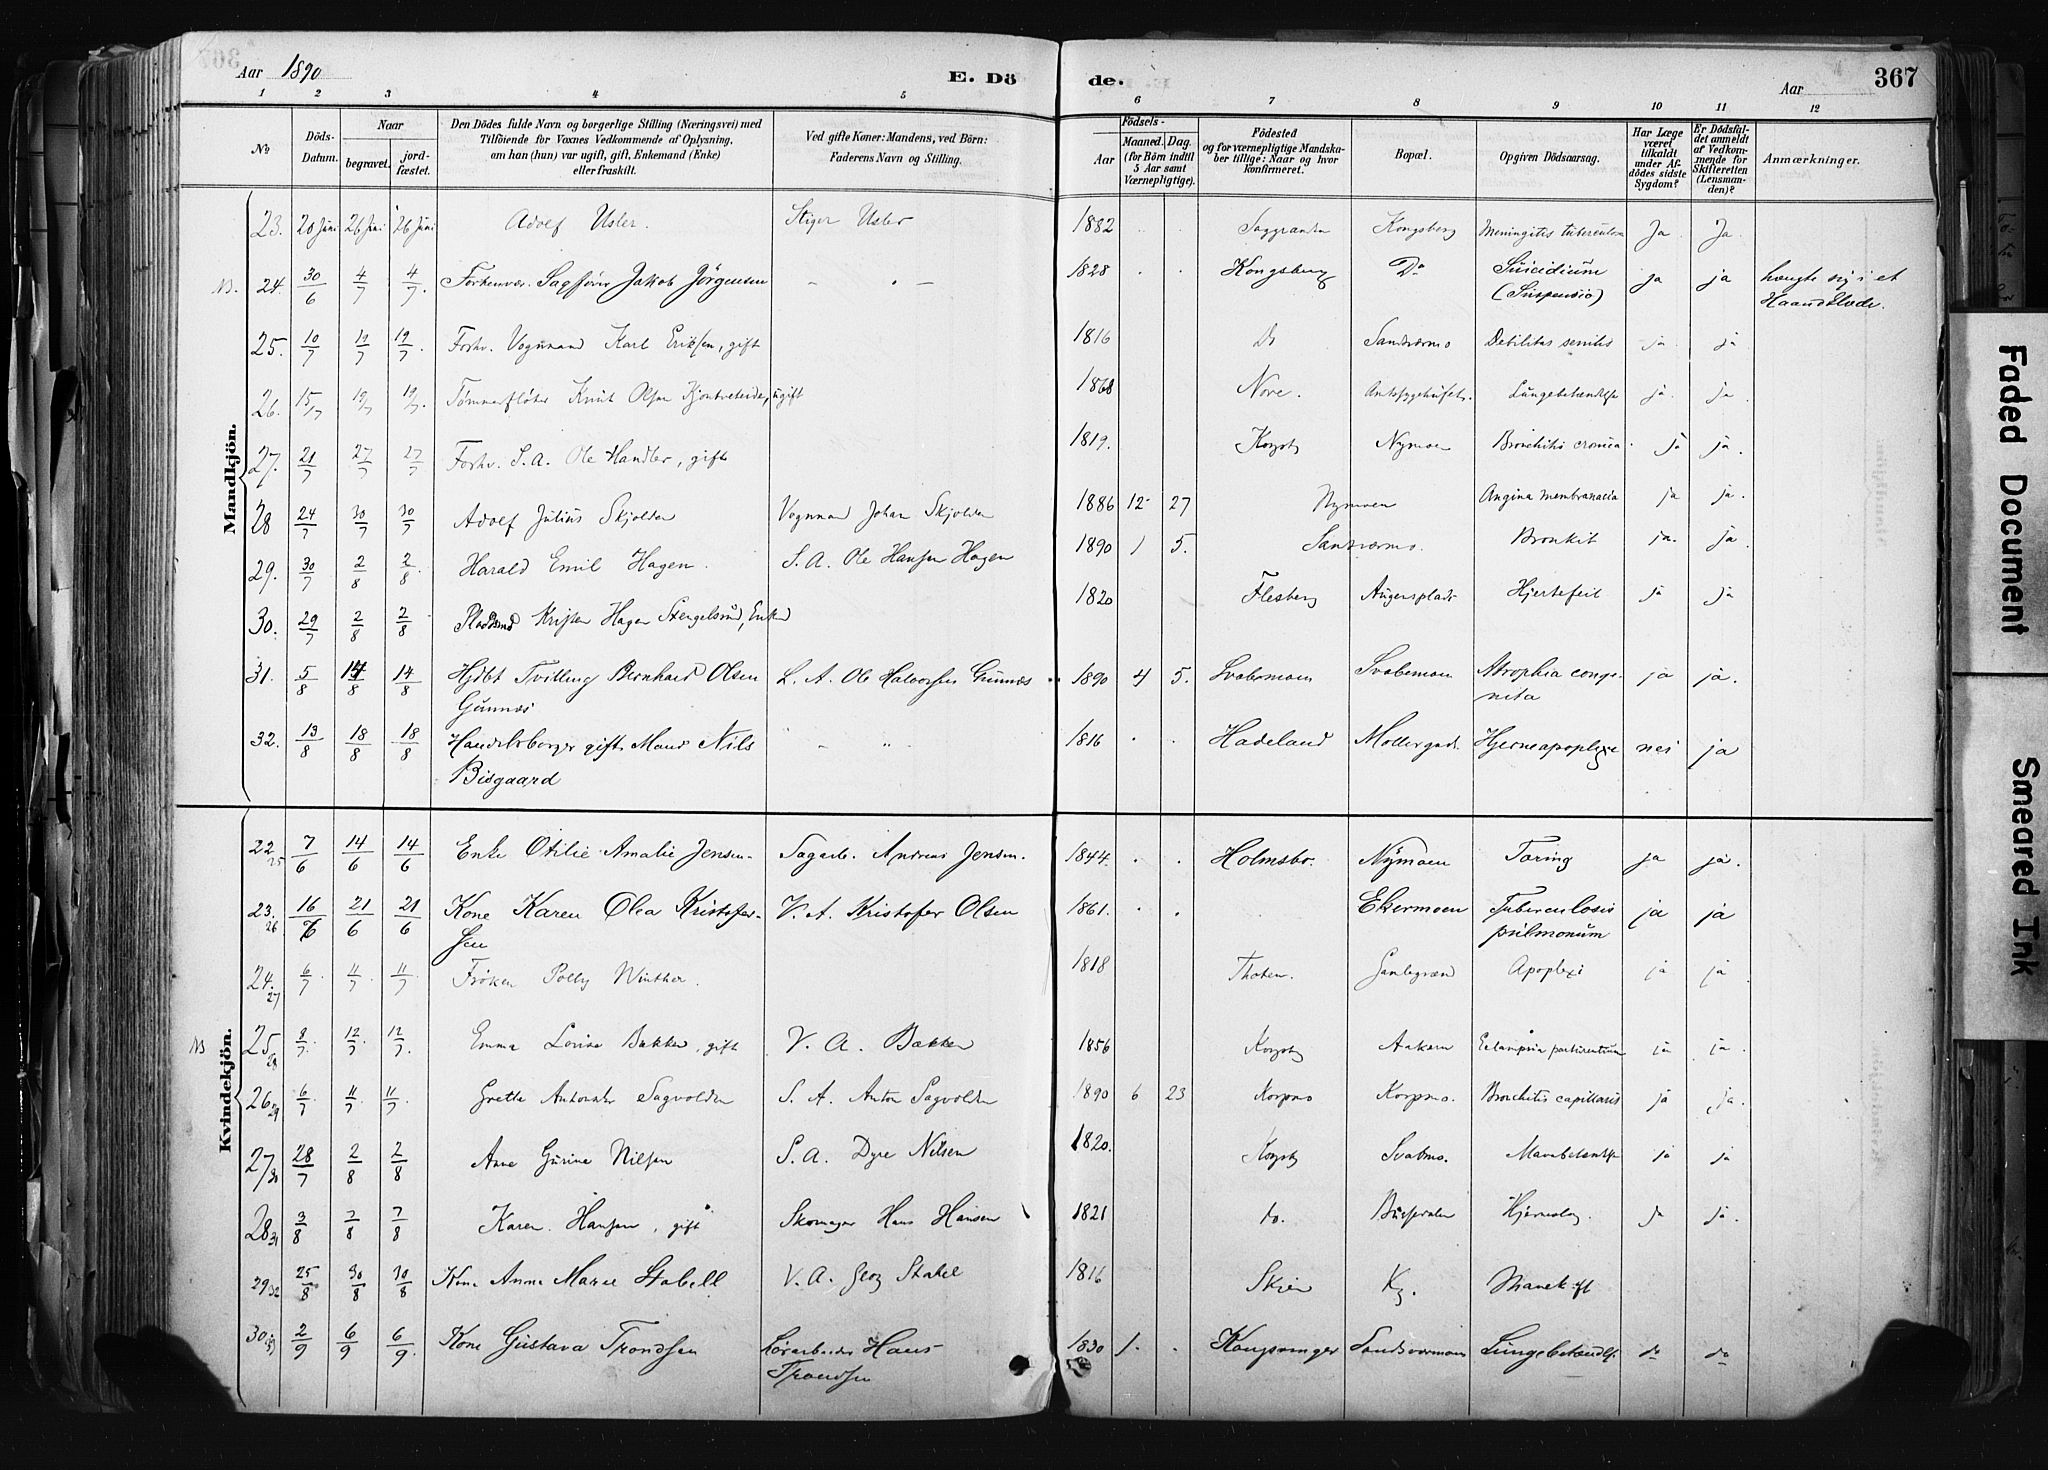 Aar 1890
E. Dö
de.
Aar
367
1 2 3 4 5 6 7 8 9 10 11 12
No
Döds-
Datum.
Naar
begravet.
jord-
fæstet.
Den Dödes fulde Navn og borgerlige Stilling (Næringsvei) med
Tilföiende for Voxnes Vedkommende af Oplysning,
om han (hun) var ugift, gift, Enkemand (Enke)
eller fraskilt.
Ved gifte Koner: Mandens, ved Börn:
Faderens Navn og Stilling.
Födsels-
Aar
Maaned. Dag.
(for Börn indtil
5 Aar samt
Værnepligtige).
Födested
og for værnepligtige Mandska-
ber tillige: Naar og hvor
konfirmeret.
Bopæl.
Opgiven Dödsaarsag.
Har Læge
været
tilkaldt
under Af-
dödes sidste
Sygdom?
Er Dödsfal-
det anmeldt
af Vedkom-
mende for
Skifteretten
(Lensman-
den)?
Anmærkninger.
Mandkjön.
23. 20 Juni 26 Juni 26 Juni Adolf Usler. Stiger Usler 1882 Saggrenden Kongsberg Meningitis tuberculosa Ja Ja
NB. 24. 30/6 4/7 4/7. Forhenvær. Sagfører Jakob Jörgensen 1828 Kongsberg Do Suicidium ja ja hængte sig i et
(Suspensio) Haandklæde.
25. 10/7 19/7 19/7. Forhv. Vognmand Karl Eriksen, gift 1816 Do Sandsværmo Debilitas senilis ja ja
26. 15/7 19/7 19/7. Tømmerfløter Knut Olsen, ugift 1868 Nore. Amtssygehuset. Lungebetændelse ja. ja
27. 21/7 27/7 27/7 Forhv. S. A. Ole Handler, gift 1819. Kongsbg Nymoen Bronchitis cronica ja ja.
28 24/7 30/7 30/7 Adolf Julius Skjolden Vognmand Johan Skjolden 1886 12 27 Nymoen Angina membranacea ja ja.
29. 30/7 2/8 2/8. Harald Emil Hagen. S. A. Ole Hansen Hagen 1890 1 5. Sandsværmo. Bronkit ja. ja
30. 29/7 2/8 2/8 Pladsmd Kristen Hagen Stengelsrud, Enkemd 1820 Flesberg Augensplads Hjertefeil ja ja
31. 5/8 14/8 14/8 Hjdbt Tvilling Bernhard Olsen L. A. Ole Halvorsen Gunnæs 1890 4 5. Svabemoen Svabemoen Atrophia conge- ja ja.
Gunnæs nita
32. 13/8 18/8 18/8 Handelsborger gift Mand Nils 1816 Hadeland Møllergad. Hjerneapoplexie nei ja
Bisgaard
Kvindekjön.
22. 25 7/6 14/6 14/6 Enke Otilie Amalie Jensen Sagarb. Andreas Jensen. 1844. Holmsbo. Nymoen Tæring ja ja.
23. 26 16/6 21/6 21/6 Kone Karen Olea Kristofer- V. A. Kristofer Olsen 1861. Ekermoen Tuberculosis ja ja
sen pulmonum
24. 27 6/7. 11/7 11/7 Frøken Polly Winther. 1818 Thoten. Gamlegrænd Apoplexi ja ja
NB 25. 28 8/7. 12/7. 12/7. Emma Lovise Bakken, gift V. A. Bakken 1856 Kongsbg Aakern Eclampsia parturentium ja ja.
26. 29 6/7. 11/7. 11/7 Grethe Antonette Sagvolden S. A. Anton Sagvolden 1890 6 23 Korpmo Korpmo. Bronchitis capillaris ja ja.
27. 30 28/7 2/8 2/8 Anne Gurine Nilsen S. A. Dyre Nilsen 1820. Kongsbg Svabmo. Mavebetændelse ja ja
28. 31 3/8 7/8 7/8 Karen Hansen, gift Skomager Hans Hansen 1821 do. Hjerneslag. Ja Ja.
29. 32 25/8 30/8 30/8 Kone Anne Marie Stabell V. A. Georg Stabel 1816 Skien Kg. Mavekræft
30. 33 2/9 6/9 6/9. Kone Gustava Trondsen Hans 1830 1. Kongsvinger Sandsværmoen Lungebetændls. do do
Trondsen
Faded Document
Smeared Ink